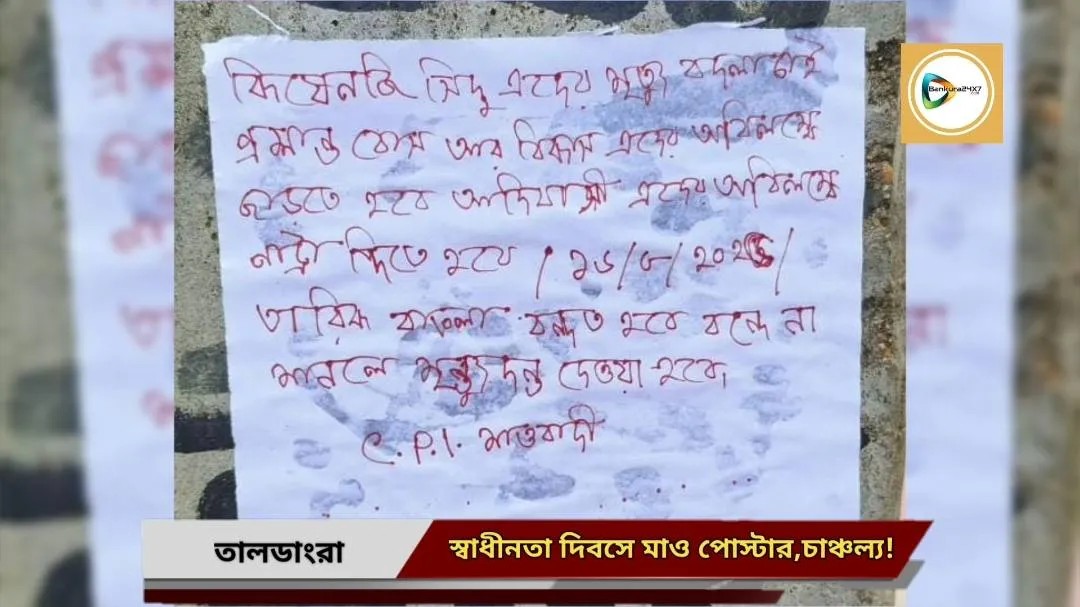 কিষেনজি সিদু এদের মৃত্যু বদলা চাই
প্রশান্ত বোস আর বিকাশ এদের অবিলম্বে
ছাড়তে হবে আদিবাসী এদের অবিলম্বে
দিতে হবে / ১৬/৮/২০২
তারিখ বাংলা হবে না
মানলে দেওয়া হবে
C.P.I. মাওবাদী
Bankura24X7
তালডাংরা
স্বাধীনতা দিবসে মাও পোস্টার,চাঞ্চল্য!